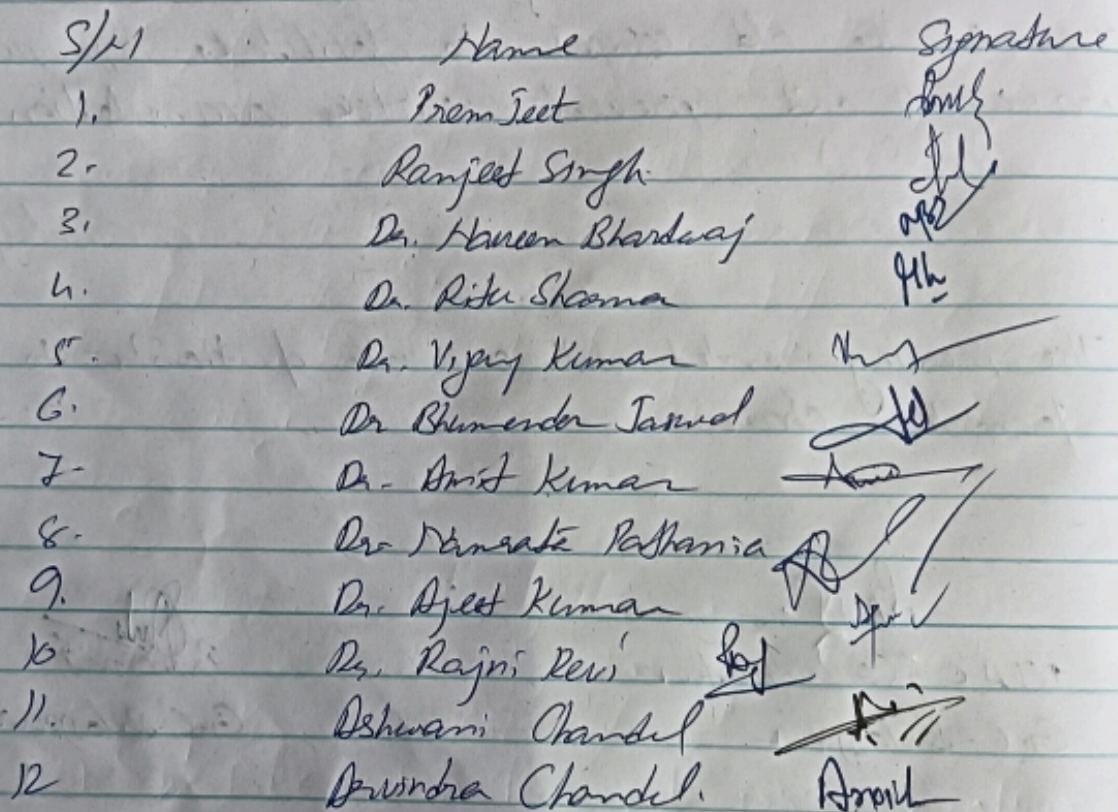 S/N Name Signature
1. Prem Jeet
2. Ranjeet Singh
3. Dr. Naveen Bhardwaj
4. Dr. Ritu Sharma
5. Dr. Vijay Kumar
6. Dr Bhumender Jaswal
7- Dr. Amit Kumar
8. Dr. Namrata Pathania
9. Dr. Ajeet Kumar
10 Dr. Rajni Devi
11. Ashwani Chandel
12 Arvindra Chandel.